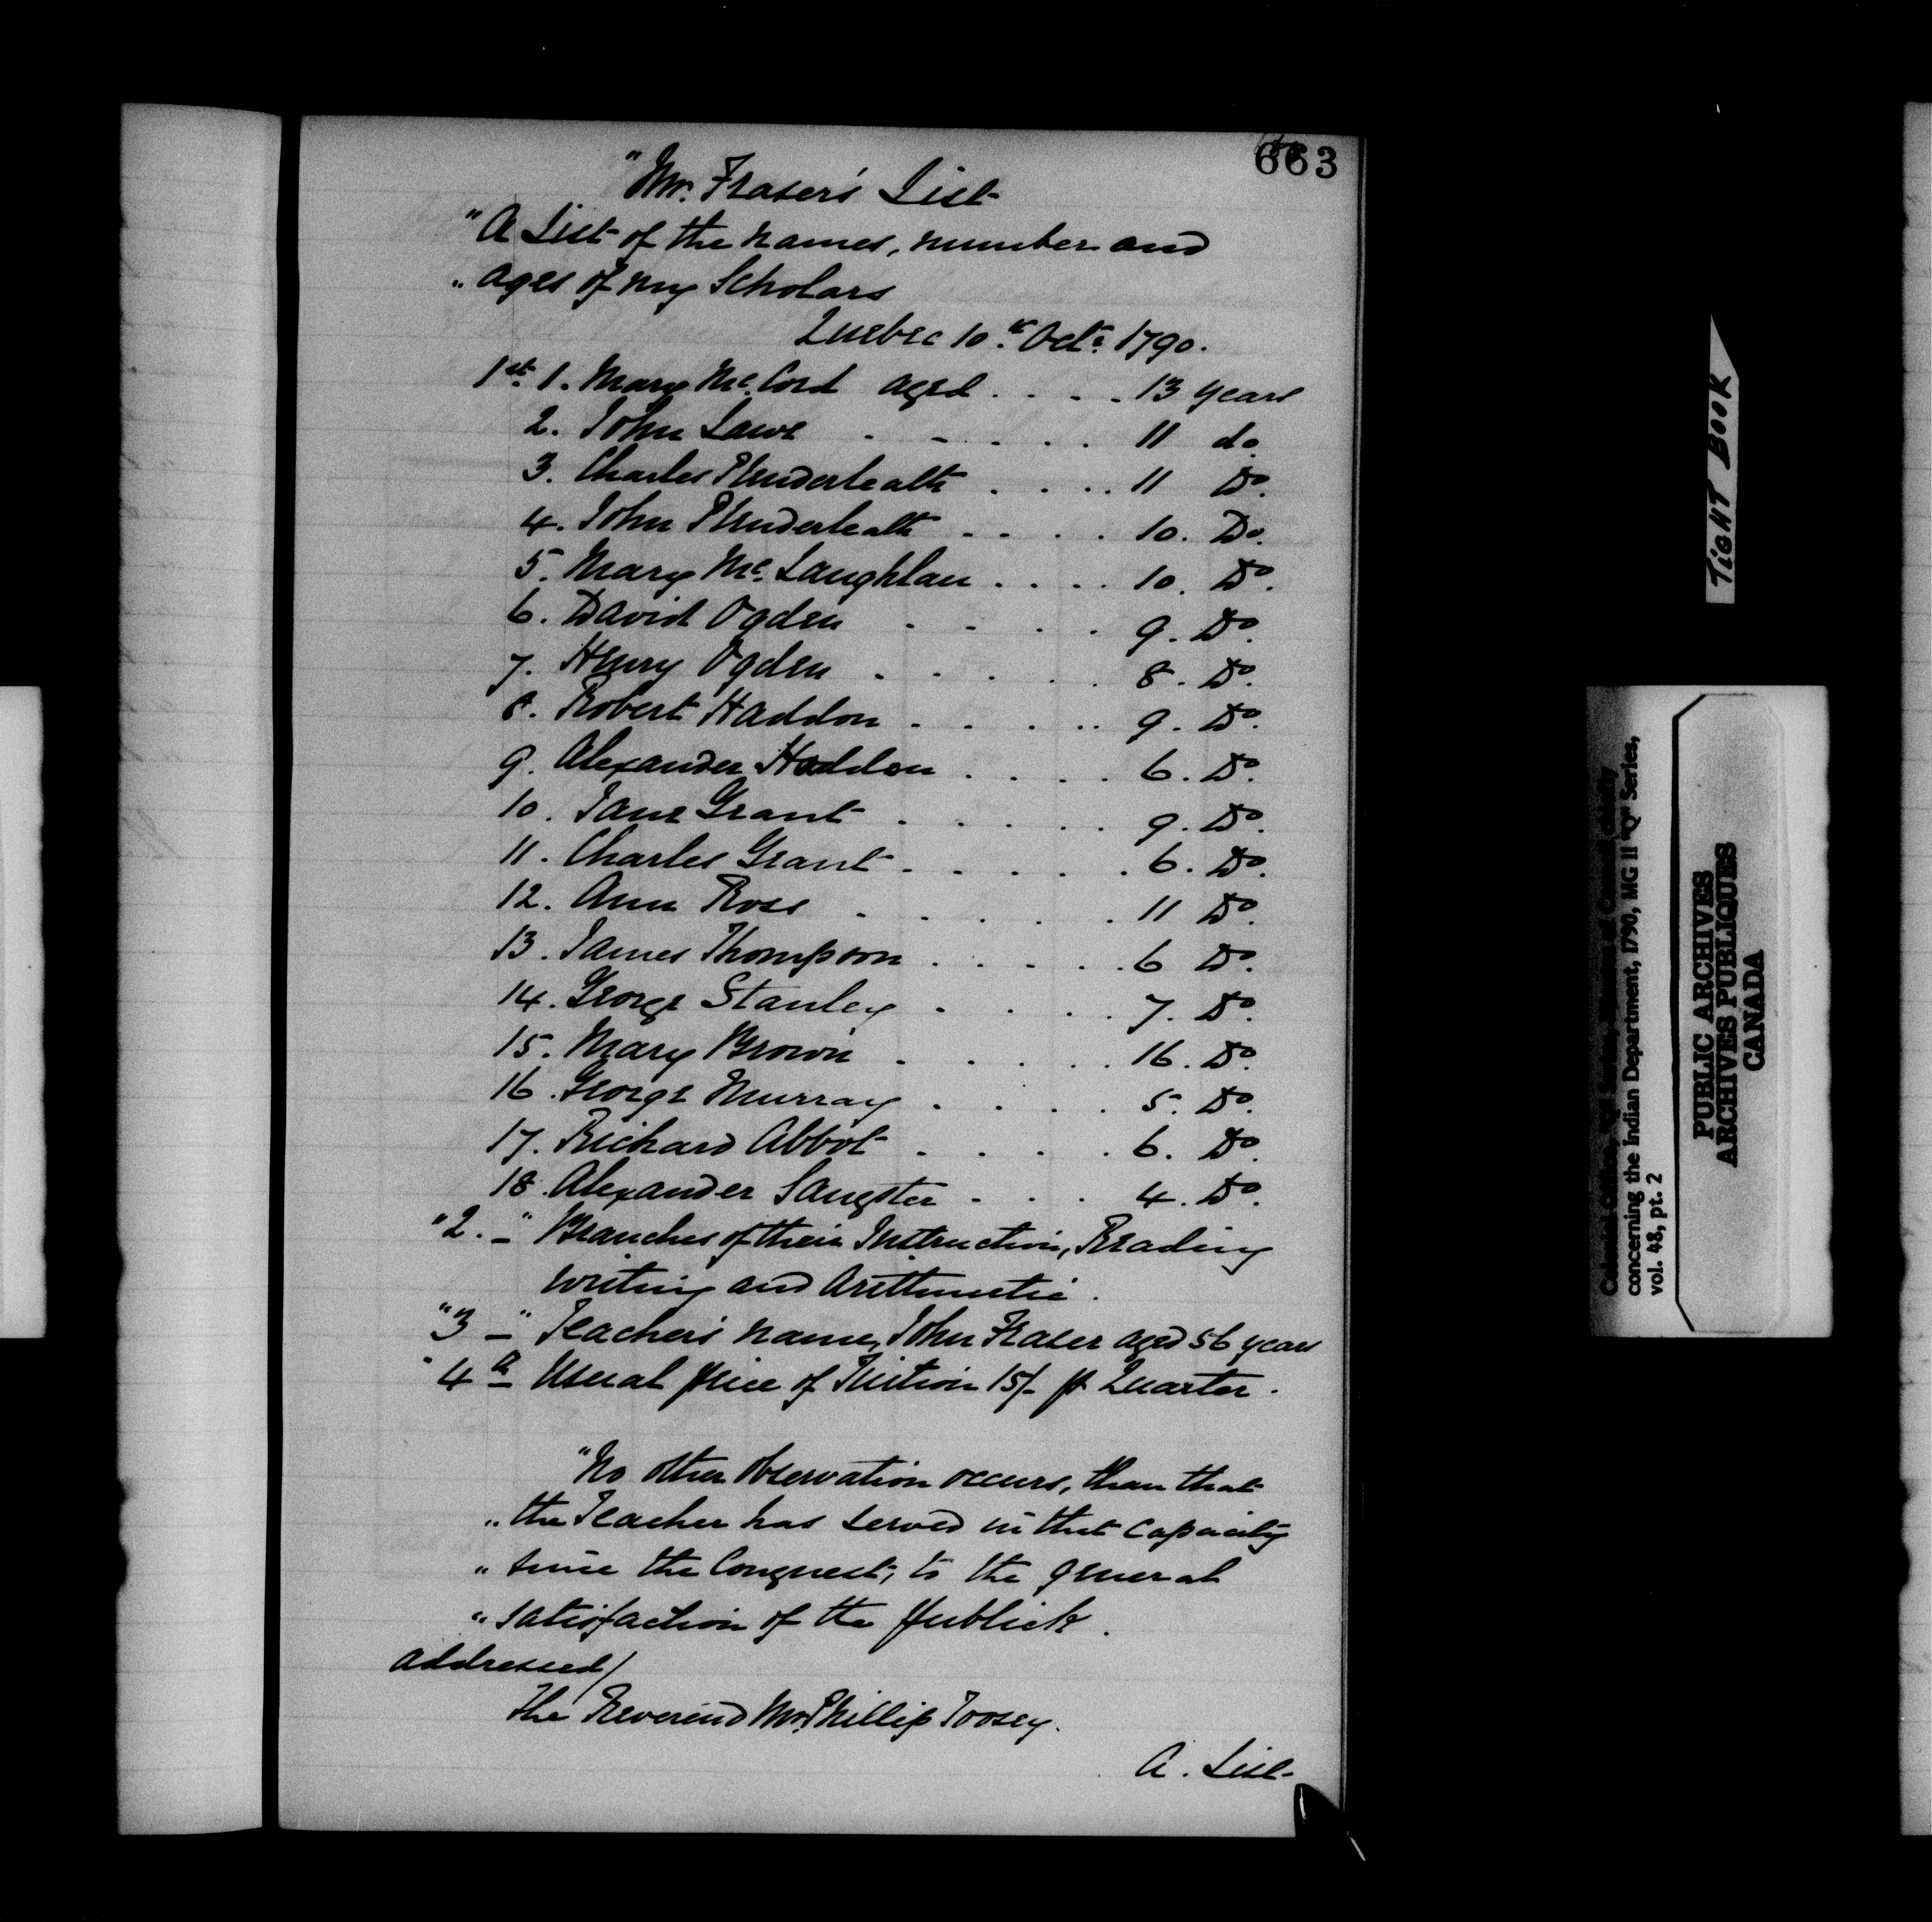 663
"Mr. Fraser's List
"A List of the names, number and
"ages of my Scholars
Quebec 10th Octr 1790.
1st. 1. Mary McCord aged . . . . 13 years
2. John Lawe - - . . . 11 do.
3. Charles Plenderleath . . . . 11 Do.
4. John Plenderleath - - . . 10. Do.
5. Mary Mc.Laughlan . . . . 10. Do.
6. David Ogden . - . . 9. Do.
7. Henry Ogden . . . . . 8. Do.
8. Robert Haddon . . . . . 9. Do.
9. Alexander Haddon . . . . 6. Do.
10. Jane Grant . . . . . 9. Do.
11. Charles Grant . . . . . 6. Do.
12. Ann Ross . . . . . 11 Do.
13. James Thompson . . . . . 6 Do.
14. George Stanley . . . . 7. Do.
15. Mary Brown . . . . . 16. Do.
16. George Murray . . . . 5. Do.
17. Richard Abbot . . . . . 6. Do.
18. Alexander Sangster . . . 4. Do.
"2. - " Branches of their Instruction, Reading
writing and Arithmetic.
"3 - " Teacher's name, John Fraser aged 56 years
"4th Usual price of Tuition 15/- pr Quarter.
"No other observation occurs, than that
"the Teacher has served in that capacity
"since the Conquest, to the general
"satisfaction of the publick.
addressed/
The Reverend Mr. Phillip Toosey.
A. List-
TIGHT BOOK
concerning the Indian Department, 1790, MG 11 "Q" Series,
vol. 48, pt. 2
PUBLIC ARCHIVES
ARCHIVES PUBLIQUES
CANADA